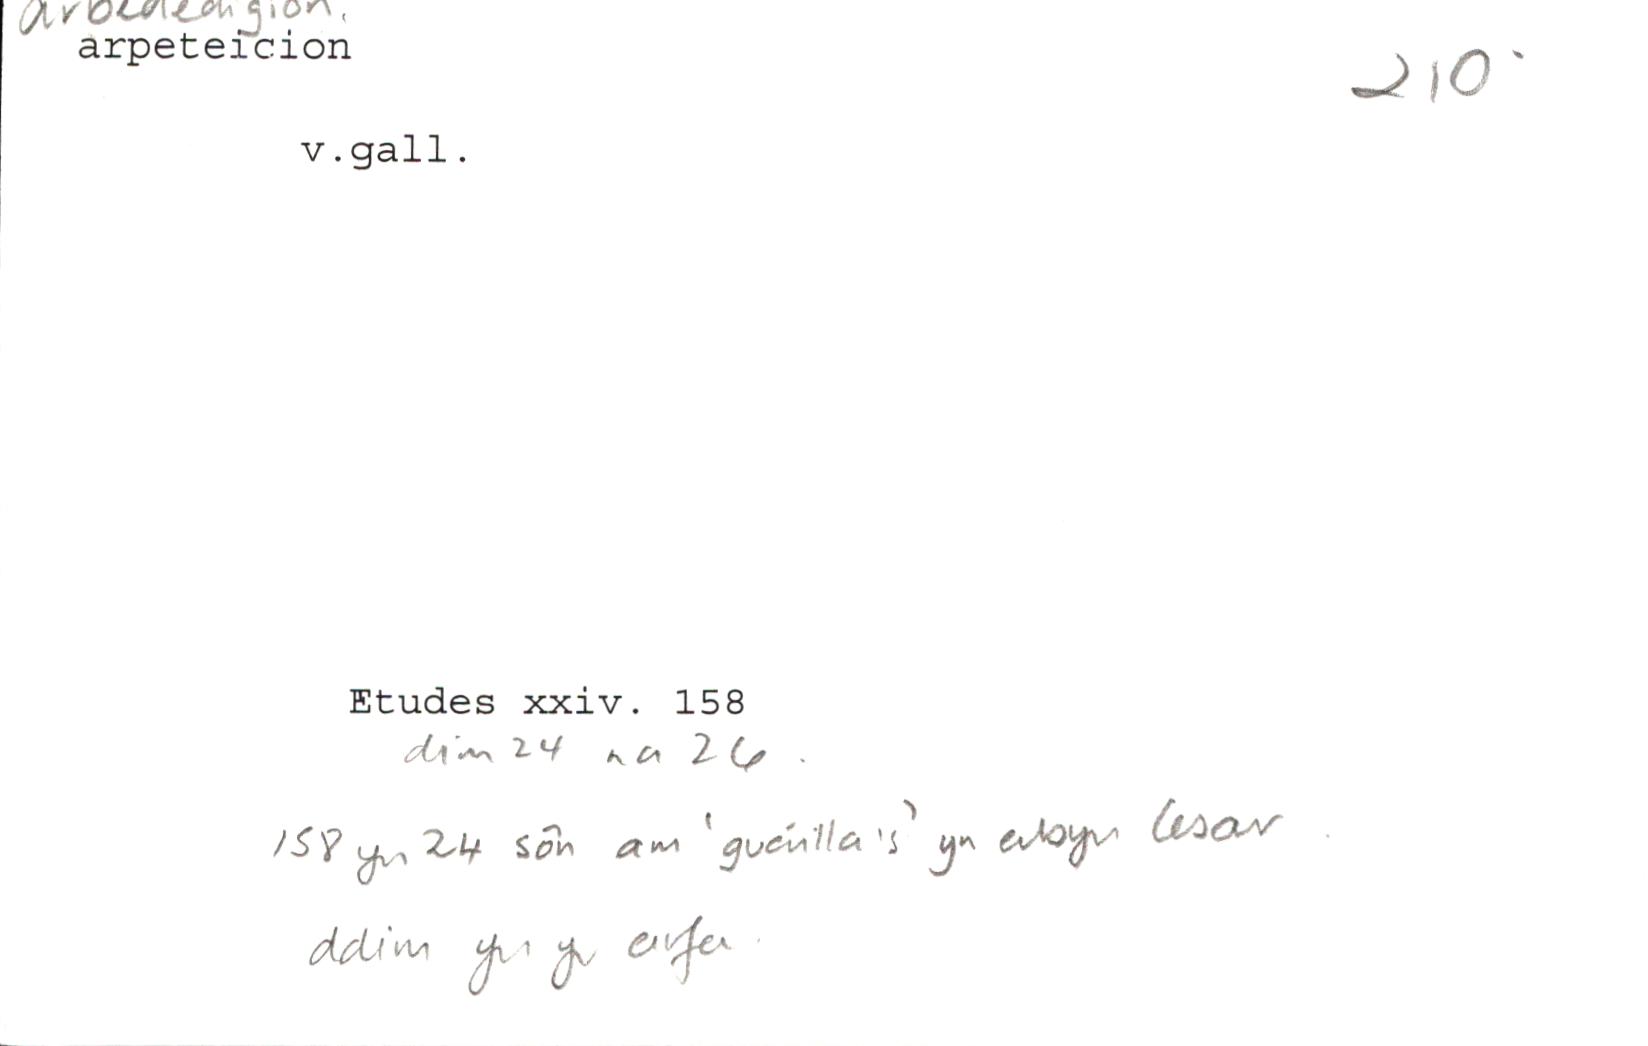 arbededigion.
arpeteicion
210
v.gall.
Etudes xxiv. 158
dim 24 na 26.
158 yn 24 sôn am 'guérilla's' yn erbyn Cesar.
ddim yn yr